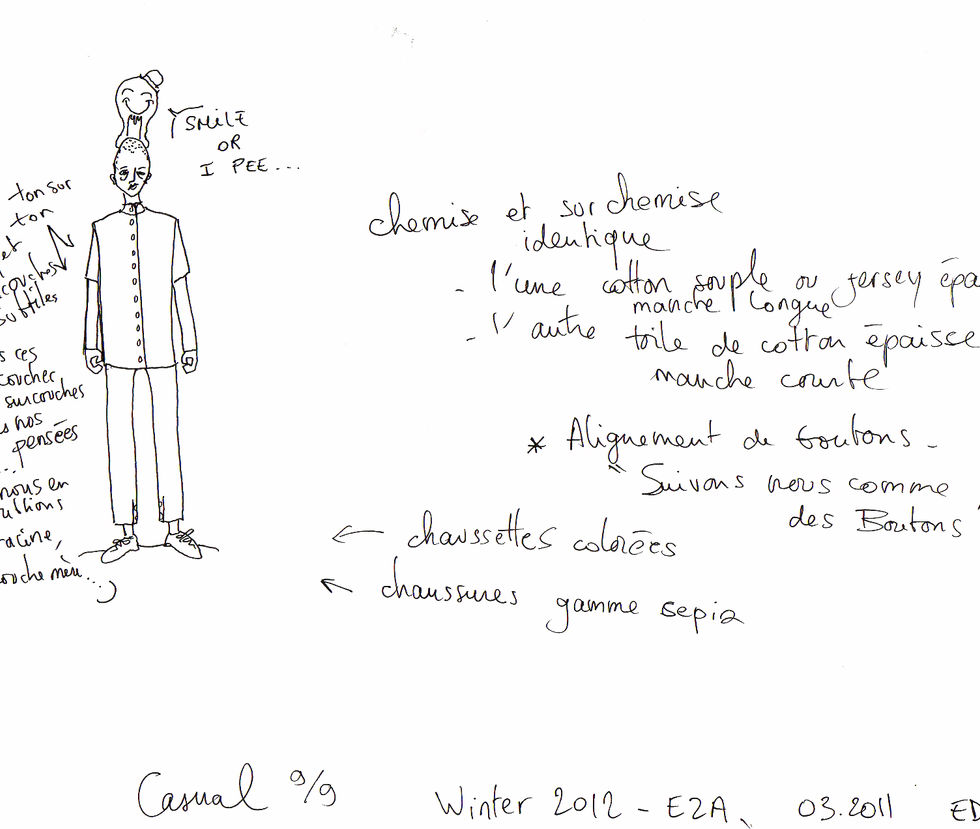 SMILE
OR
I PEE...
ton sur
ton
et
couches
subtiles
ces
coucher
surcouches
nos
pensées
...
nous en
racine,
couche mère...
chemise et surchemise
identique
- l'une cotton souple ou jersey épa
manche longue
- l'autre toile de cotton épaisse
manche courte
* Alignement de boutons -
" Suivons nous comme
des Boutons "
← chaussettes colorées
← chaussures gamme sepia
Casual 9/9
Winter 2012 - E2A, 03.2011 ED